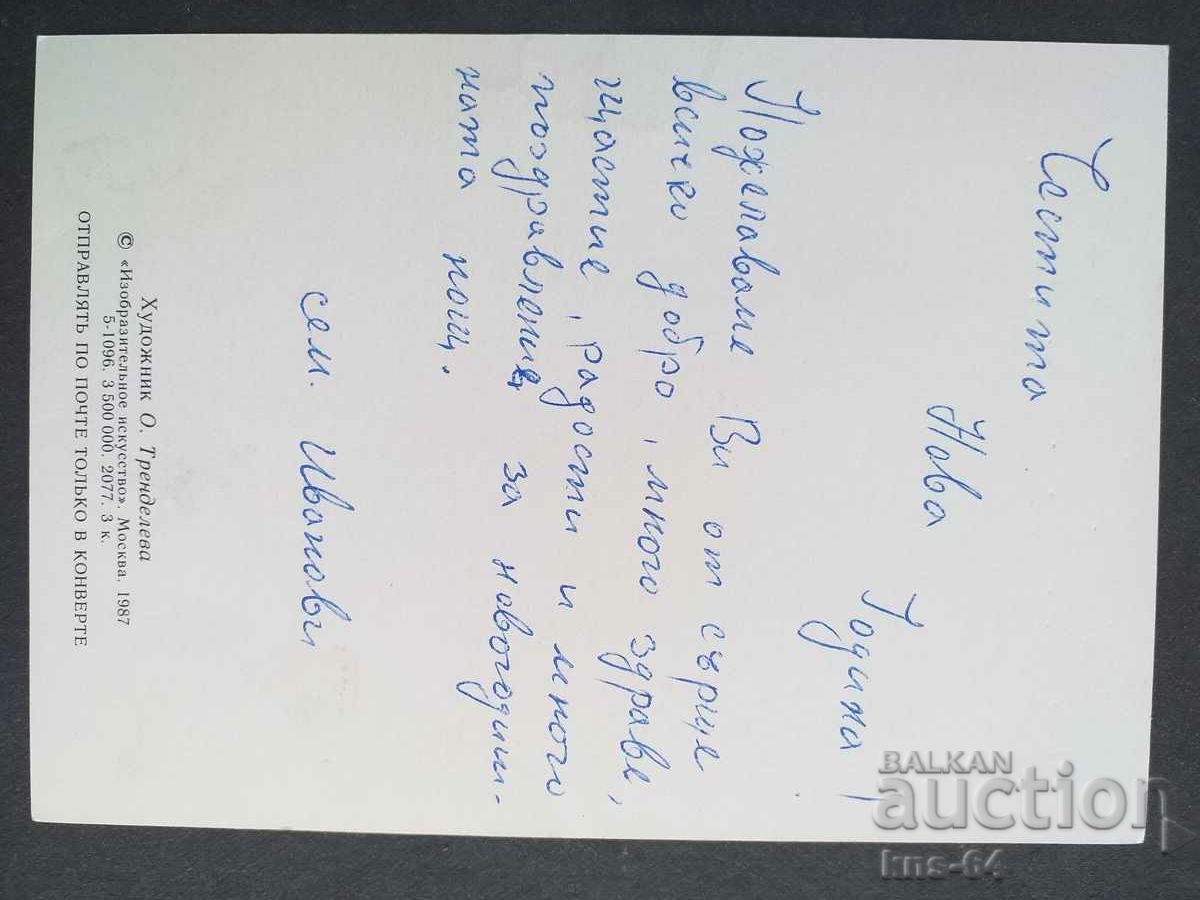 Честита
Нова
Година!
Пожелаваме Ви от сърце
всичко добро, много здраве,
щастие, радости и много
поздравления за новогодиш-
ната нощ.
сем. Иванови
Художник О. Тренделева
© «Изобразительное искусство». Москва. 1987
5-1096. 3 500 000. 2077. 3 к.
ОТПРАВЛЯТЬ ПО ПОЧТЕ ТОЛЬКО В КОНВЕРТЕ
BALKAN
auction
kns-64